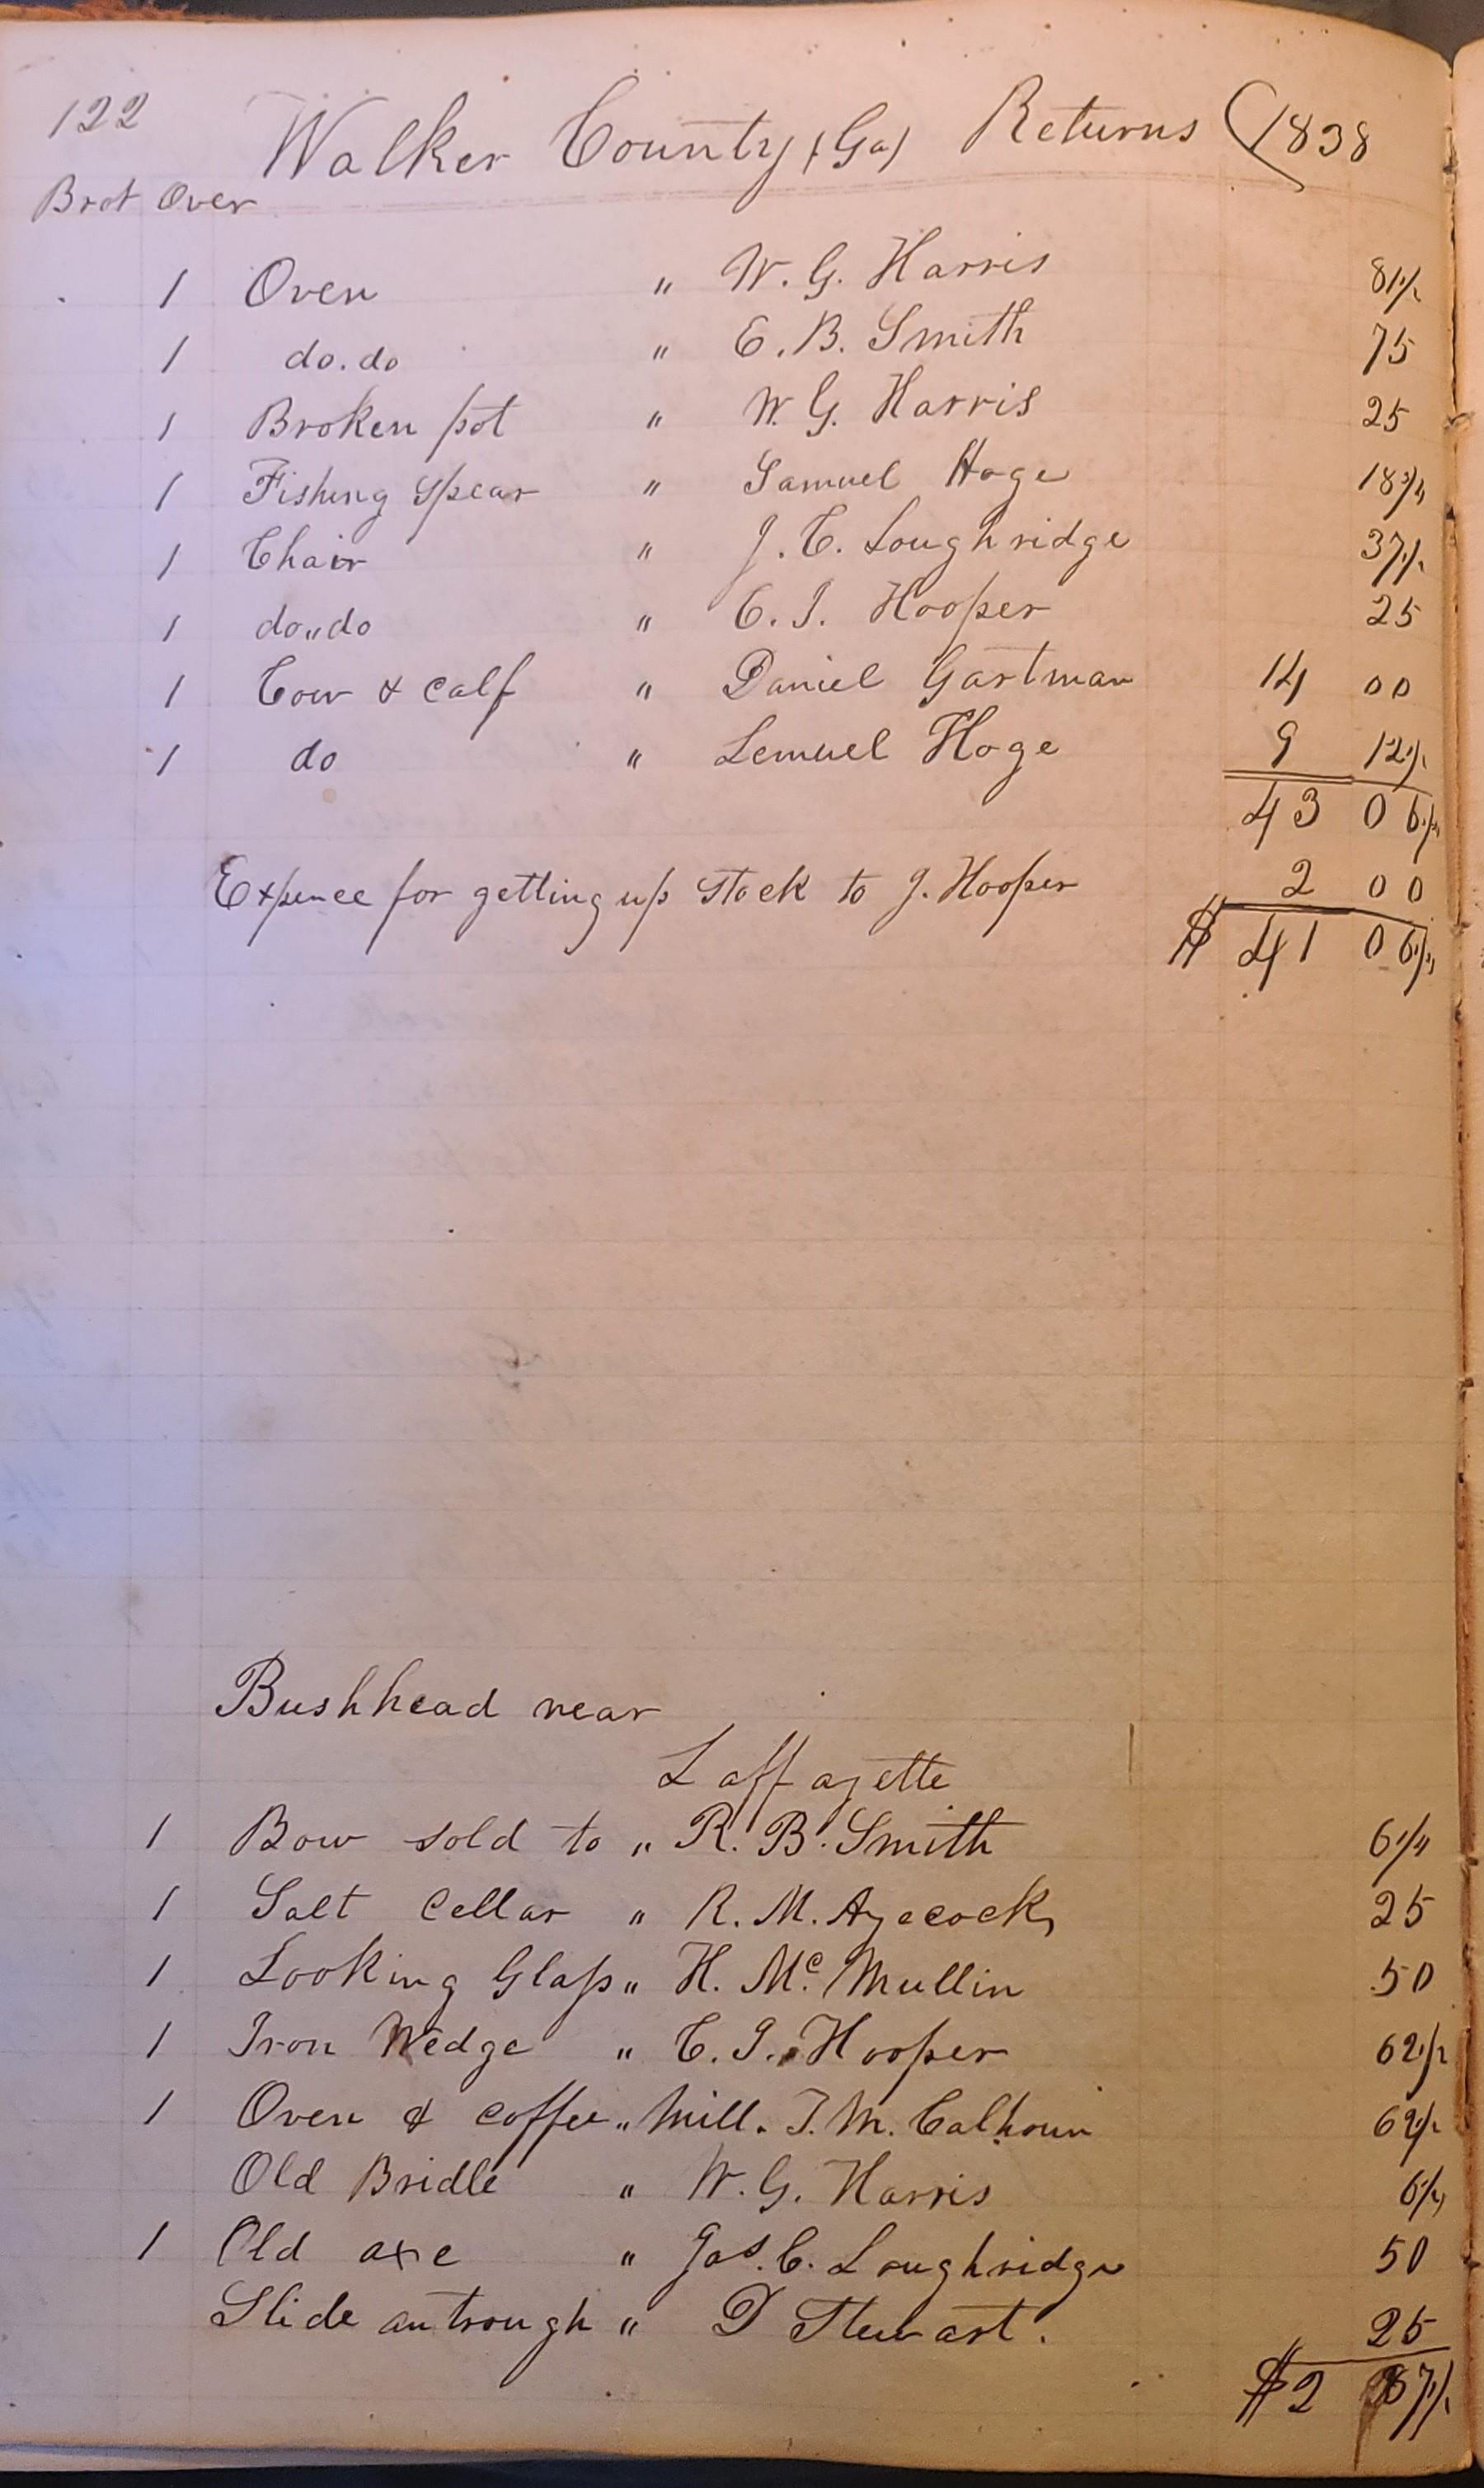 122 Walker County (Ga) Returns (1838
Brot Over
1 Oven " W. G. Harris 81 1/2
1 do. do " E. B. Smith 75
1 Broken pot " W. G. Harris 25
1 Fishing Spear " Samuel Hoge 18 3/4
1 Chair " J. C. Loughridge 37 1/2
1 do " do " C. J. Hooper 25
1 Cow & calf " Daniel Gartman 14 00
1 do " Lemuel Hoge 9 12 1/2
43 06 1/4
Expence for getting up stock to J. Hooper 2 00
$ 41 06 1/4
Bushhead near
Laffayette
1 Bow sold to " R. B. Smith 6 1/4
1 Salt Cellar " R. M. Aycock 25
1 Looking Glass " H. Mc. Mullin 50
1 Iron Wedge " C. J. Hooper 62 1/2
1 Oven & coffee " Mill. J. M. Calhoun 62 1/2
Old Bridle " W. G. Harris 6 1/4
1 Old axe " Jas. C. Loughridge 50
Slide an trough " D Stewart. 25
$2 87 1/2